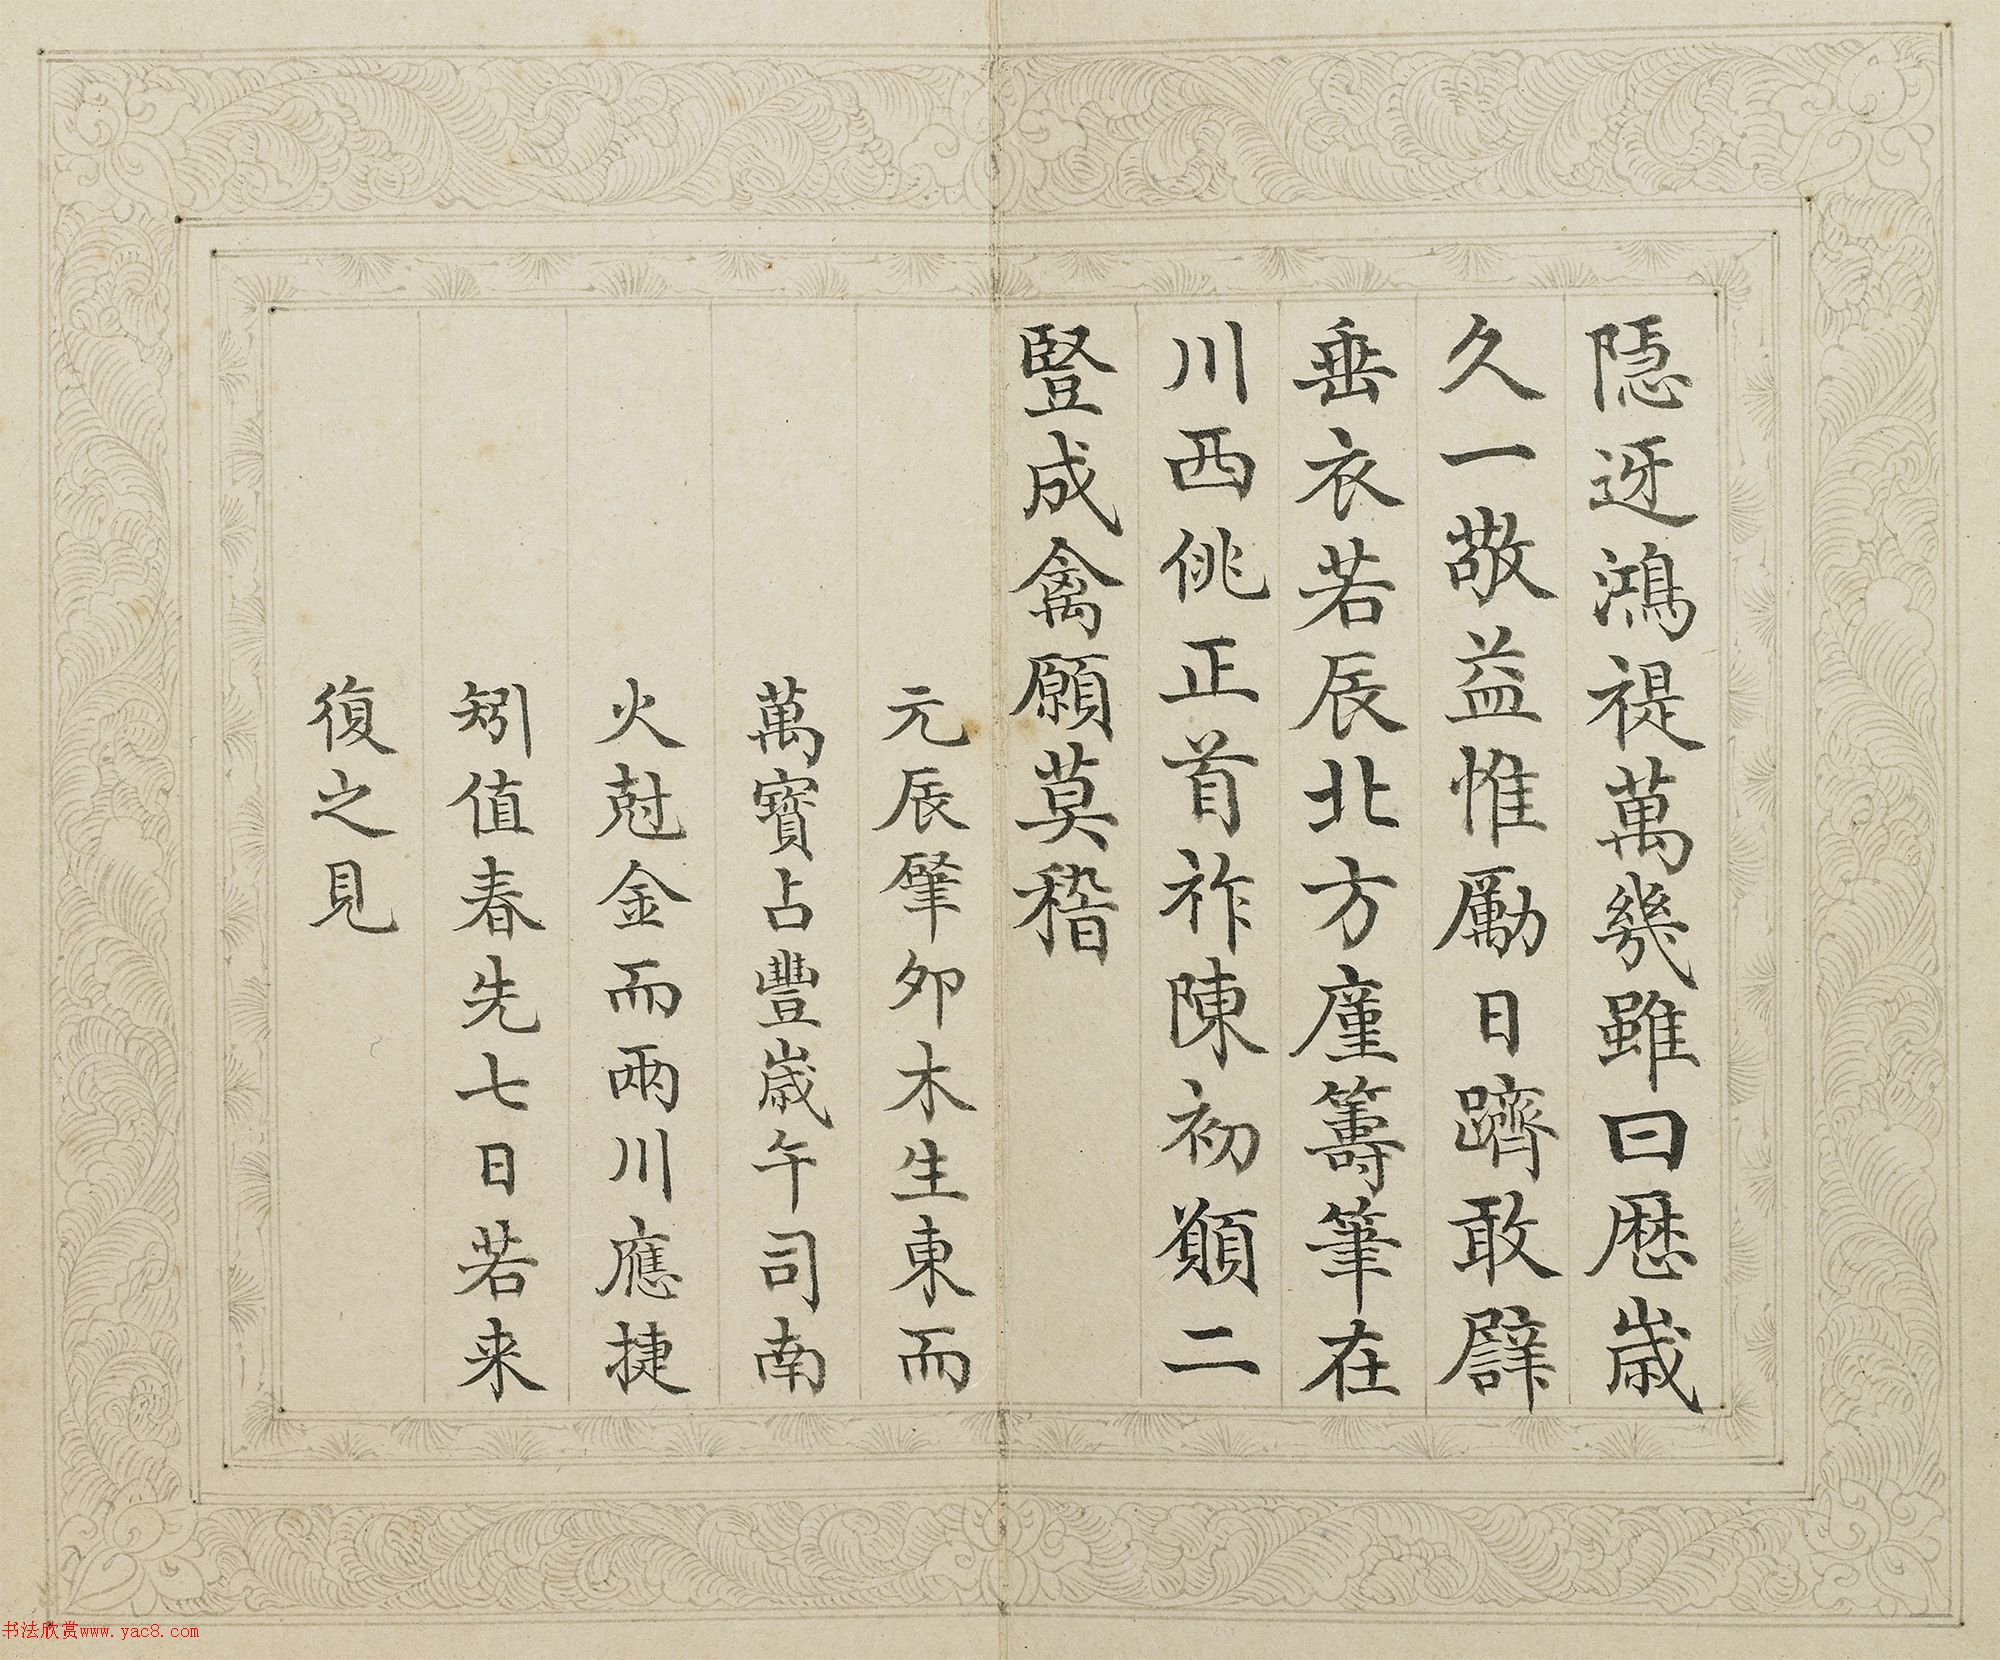 隱迓鴻禔萬幾雖曰歷歲
久一敬益惟勵日躋敢辟
垂衣若辰北方廑籌筆在
川西佻正首祚陳初願二
豎成禽願莫稽
元辰肇卯木生東而
萬寶占豐歲午司南
火尅金而兩川應捷
矧值春先七日若来
復之見
书法欣赏www.yac8.com